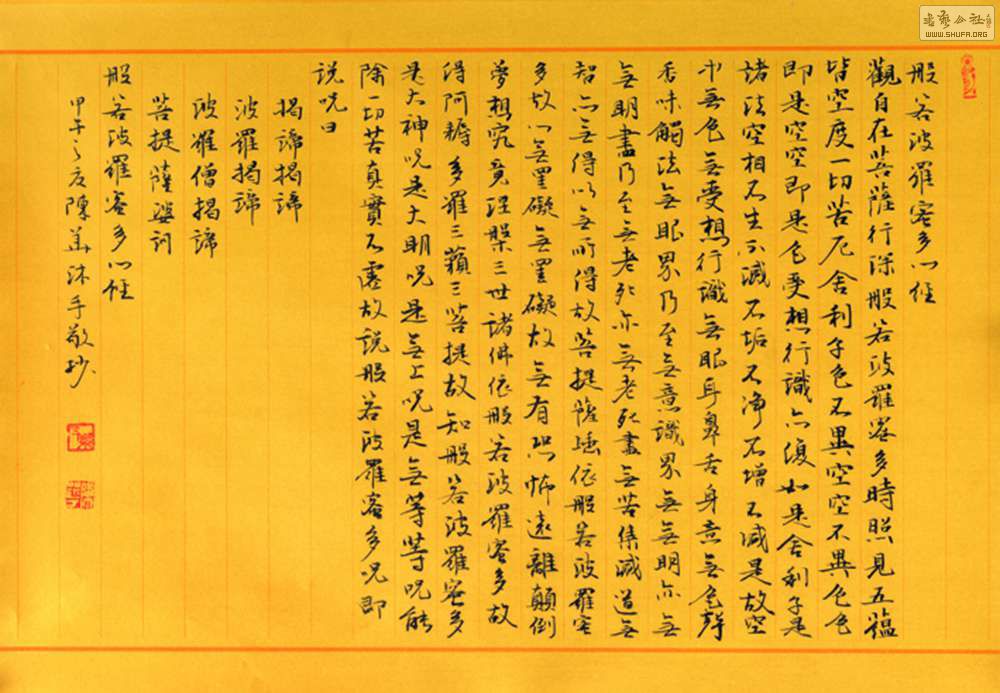 書藝公社
WWW.SHUFA.ORG
般若波羅密多心经
觀自在菩薩行深般若波羅密多時照見五蕴
皆空度一切苦厄舍利子色不異空空不異色色
即是空空即是色受想行識亦復如是舍利子是
諸法空相不生不滅不垢不净不增不减是故空
中無色無受想行識無眼耳鼻舌身意無色聲
香味觸法無眼界乃至無意識界無無明亦無
無明盡乃至無老死亦無老死盡無苦集滅道無
智亦無得以無所得故菩提薩埵依般若波羅密
多故心無罣礙無罣礙故無有恐怖遠離顛倒
夢想究竟涅槃三世諸佛依般若波羅密多故
得阿耨多羅三藐三菩提故知般若波羅密多
是大神呪是大明呪是無上呪是無等等呪能
除一切苦真實不虛故說般若波羅密多呪即
說呪曰
揭諦揭諦
波羅揭諦
波羅僧揭諦
菩提薩婆訶
般若波羅密多心经
甲午之夏陳沐手敬抄